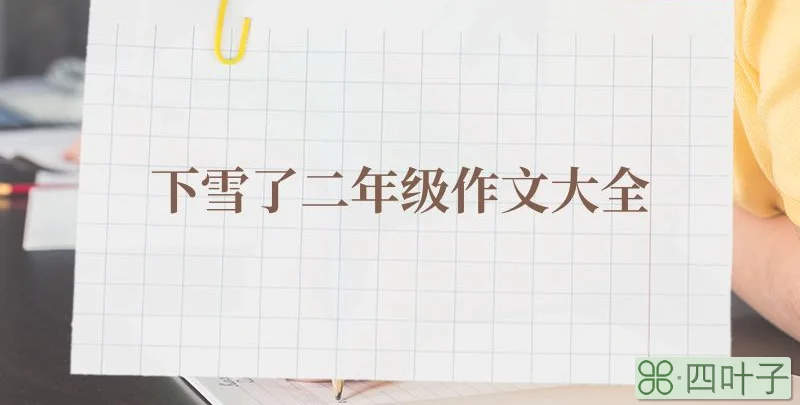 下雪了二年级作文大全
⌘·四叶子